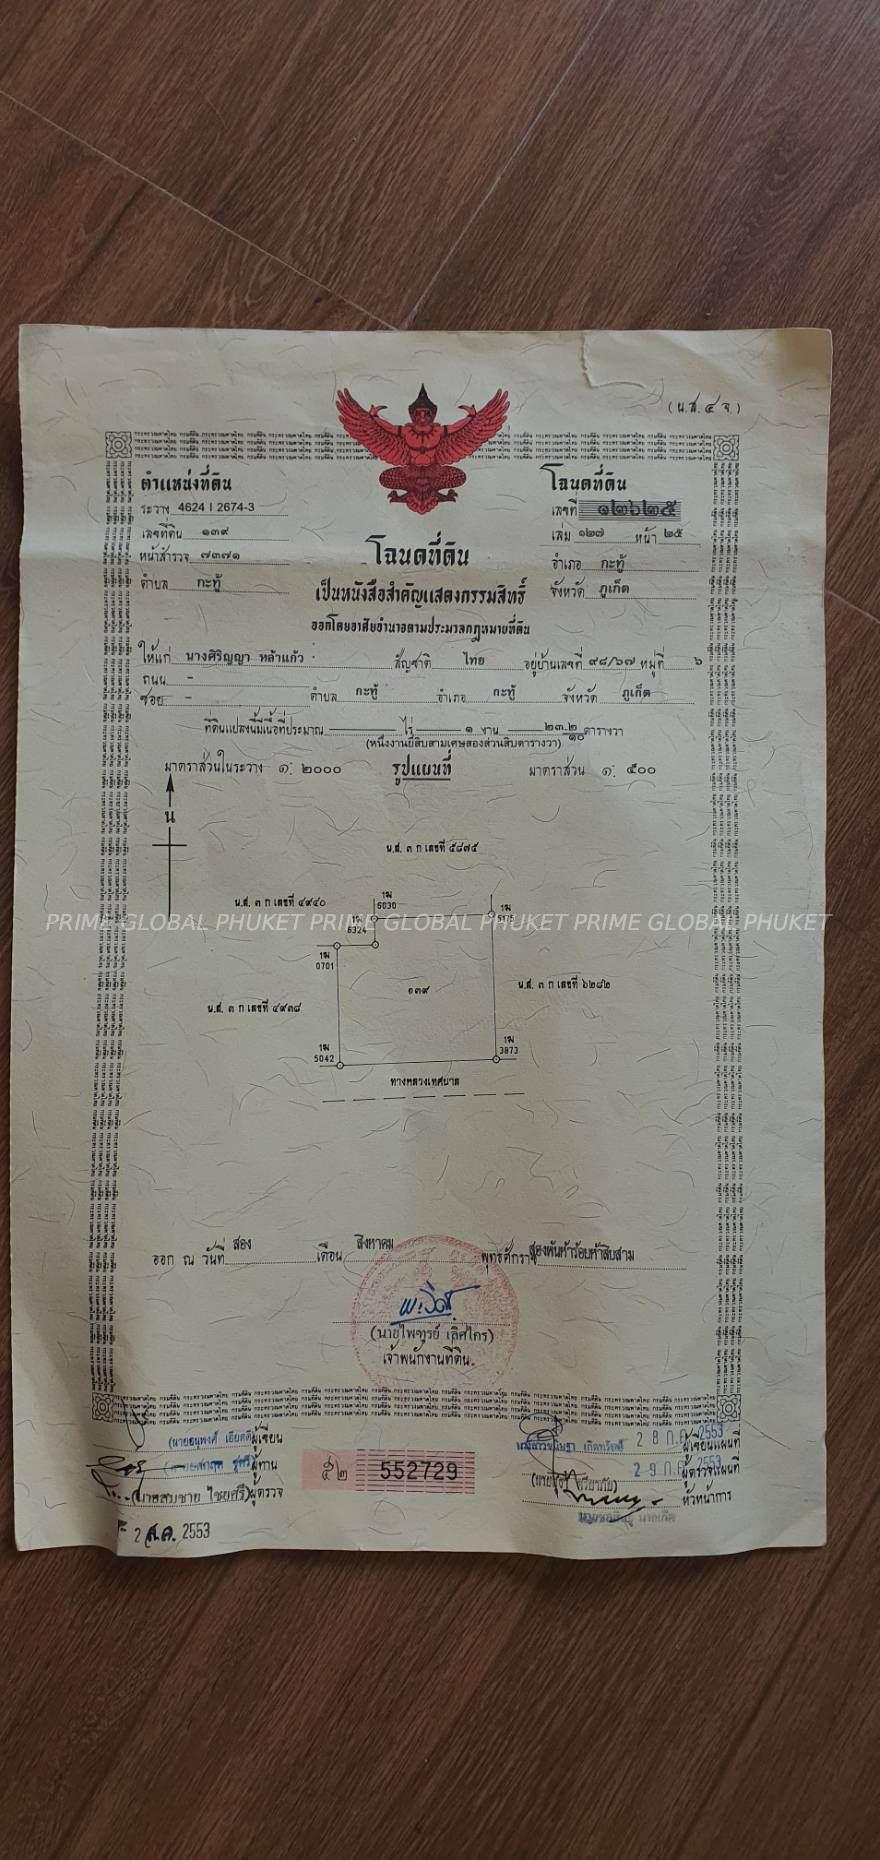 (น.ส. ๔ จ.)
ตำแหน่งที่ดิน
ระวาง 4624 I 2674-3
เลขที่ดิน ๑๓๙
หน้าสำรวจ ๗๓๗๑
ตำบล กะทู้
โฉนดที่ดิน
เลขที่ ๑๒๖๒๕
เล่ม ๑๒๗ หน้า ๒๕
อำเภอ กะทู้
จังหวัด ภูเก็ต
โฉนดที่ดิน
เป็นหนังสือสำคัญแสดงกรรมสิทธิ์
ออกโดยอาศัยอำนาจตามประมวลกฎหมายที่ดิน
ให้แก่ นางศิริญญา หล้าแก้ว สัญชาติ ไทย อยู่บ้านเลขที่ ๙๘/๖๗ หมู่ที่ ๖
ถนน -
ซอย - ตำบล กะทู้ อำเภอ กะทู้ จังหวัด ภูเก็ต
ที่ดินแปลงนี้มีเนื้อที่ประมาณ ไร่ ๑ งาน ๒๓ ๒/๑๐ ตารางวา
(หนึ่งงานยี่สิบสามเศษสองส่วนสิบตารางวา)
มาตราส่วนในระวาง ๑: ๒๐๐๐ รูปแผนที่ มาตราส่วน ๑: ๕๐๐
น
น.ส. ๓ ก เลขที่ ๕๘๗๕
น.ส. ๓ ก เลขที่ ๔๙๔๐
1ฆ
6030
1ฆ
6324
1ฆ
PRIME GLOBAL PHUKET PRIME GLOBAL PHUKET PRIME GLOBAL PHUKET
1ฆ
0701
๑๓๙
น.ส. ๓ ก เลขที่ ๖๒๘๒
น.ส. ๓ ก เลขที่ ๔๙๓๘
1ฆ
5042
1ฆ
3873
ทางหลวงเทศบาล
ออก ณ วันที่ สอง เดือน สิงหาคม พุทธศักราช สองพันห้าร้อยห้าสิบสาม
(นายไพฑูรย์ เลิศไกร)
เจ้าพนักงานที่ดิน
ผู้เขียน
ผู้ทาน
(นายสมชาย ไชยศรี) ผู้ตรวจ
2 ส.ค. 2553
๕๒ 552729
28 ก.ค. 2553 ผู้เขียนแผนที่
29 ก.ค. 2553 ผู้ตรวจแผนที่
หัวหน้าการ